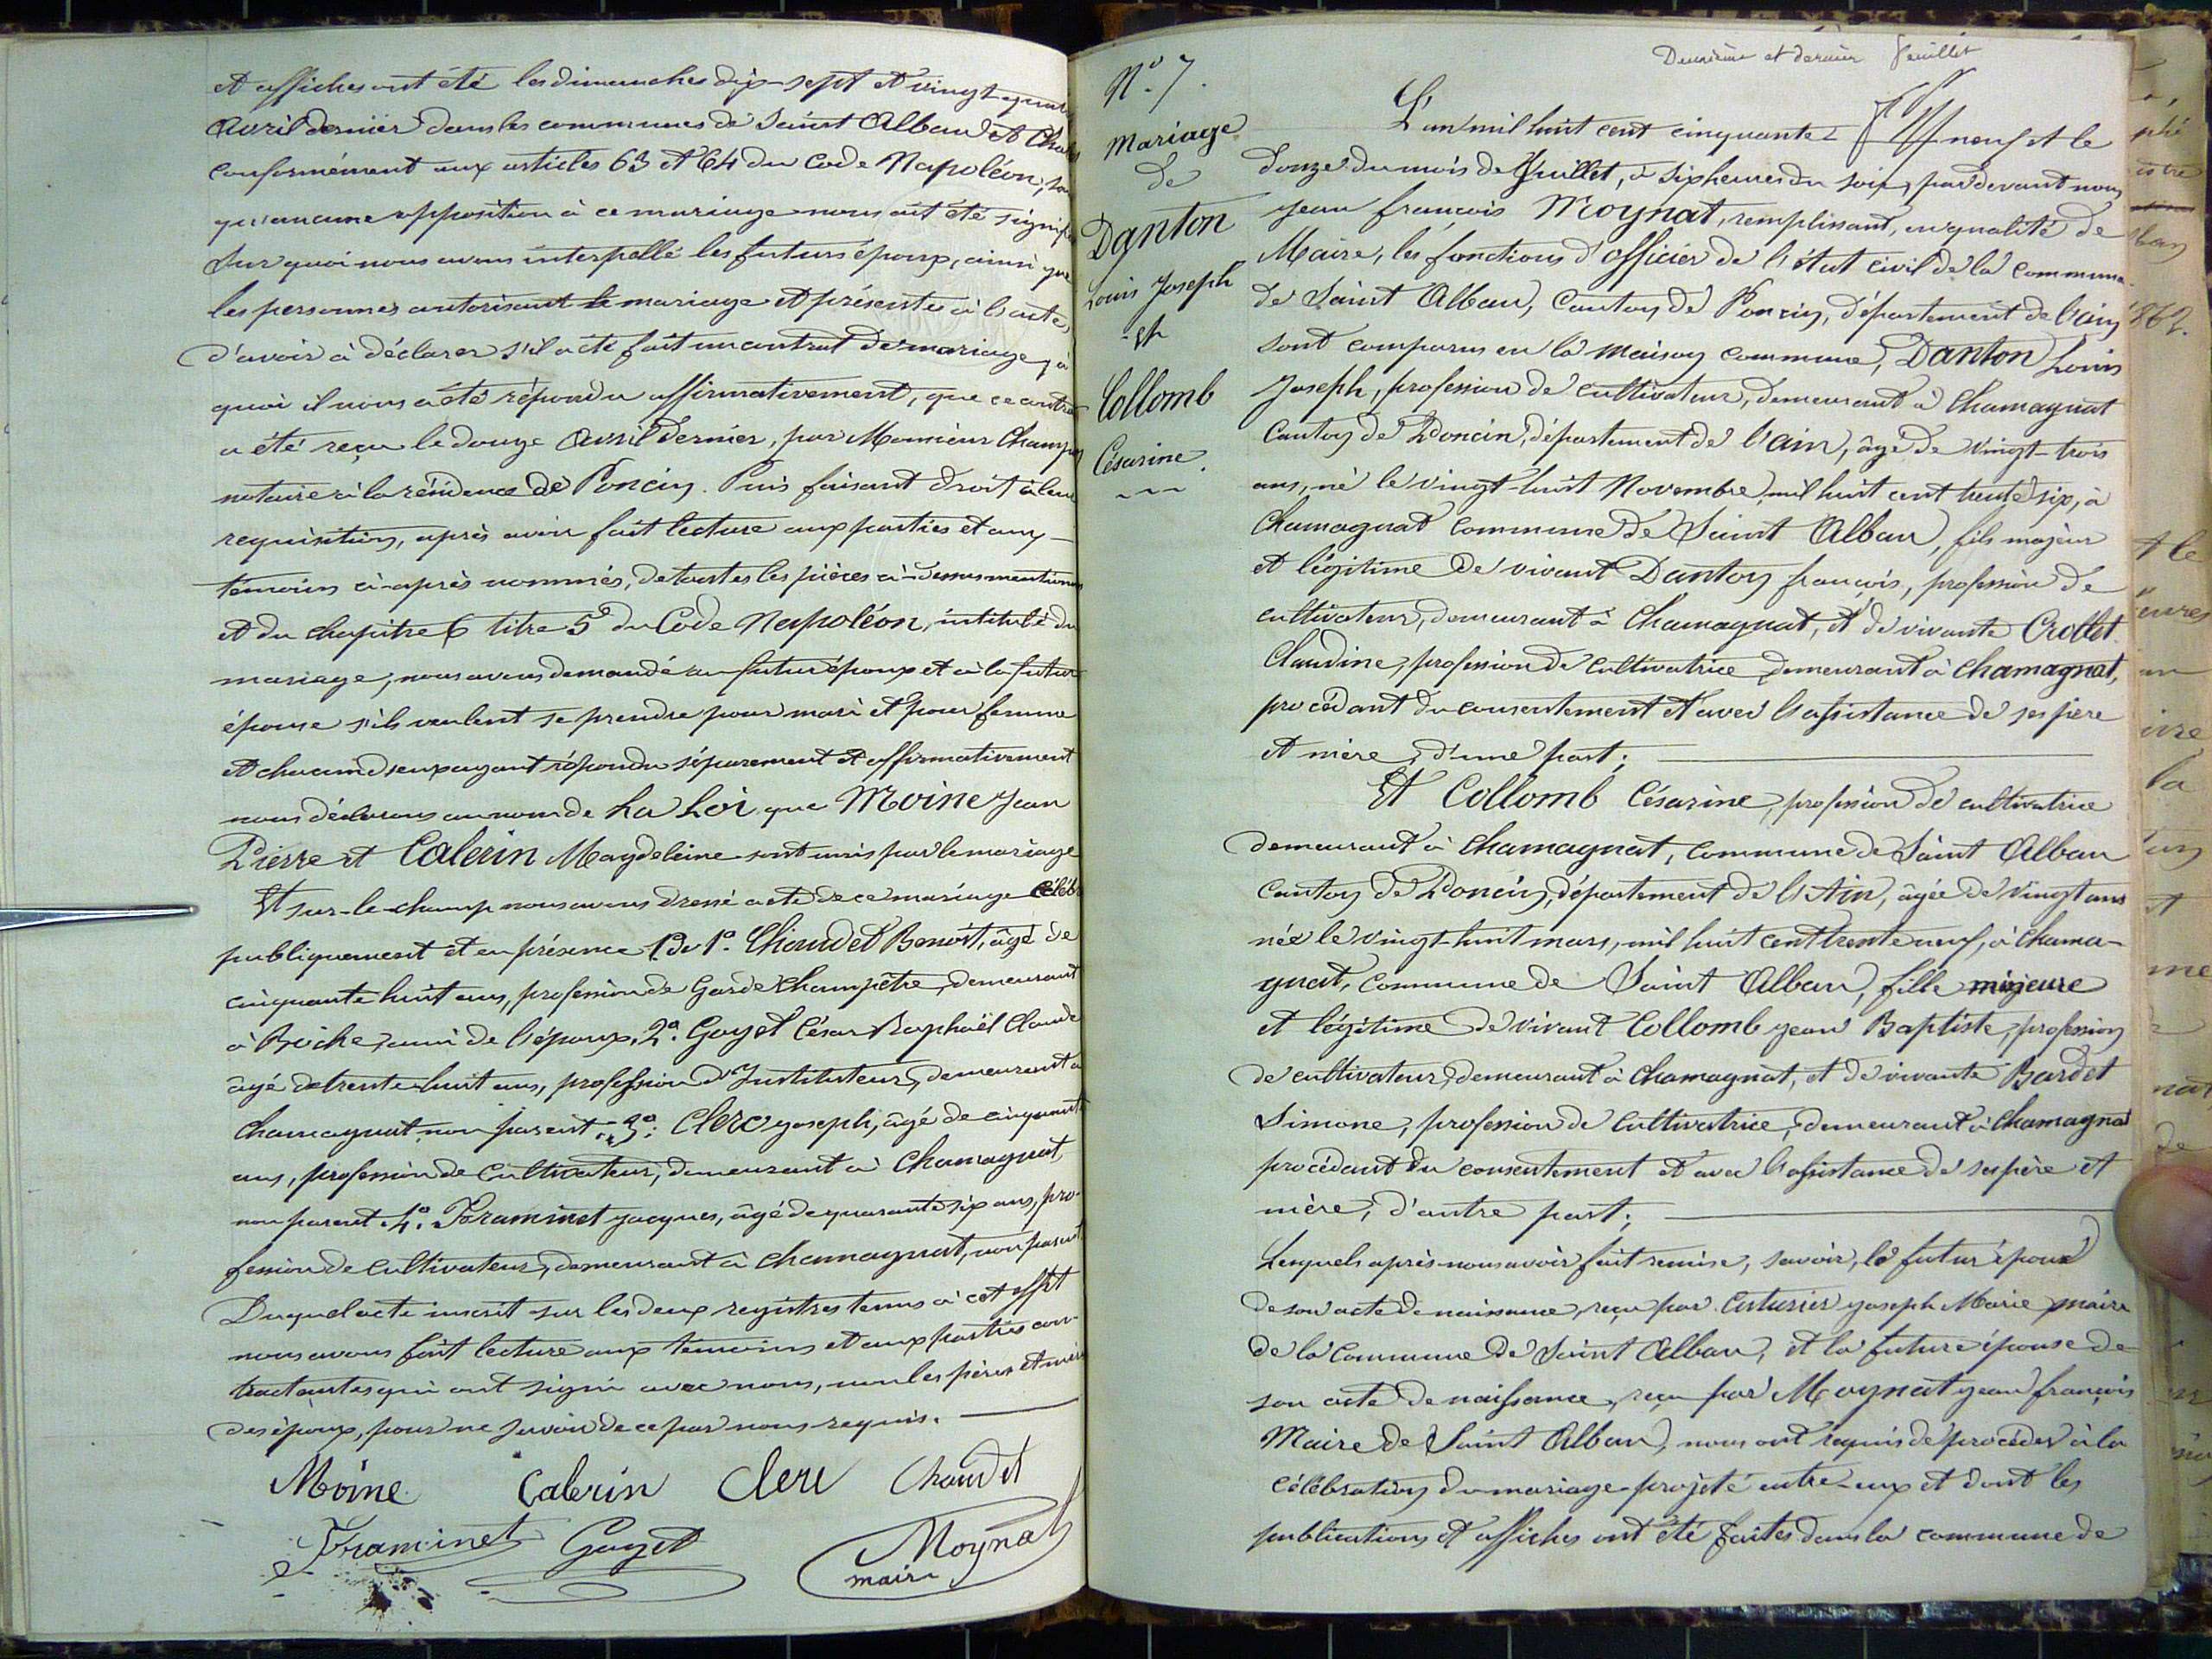 et affiches ont été les dimanches dix-sept et vingt-quatre
Avril dernier dans les communes de Saint Alban et
conformément aux articles 63 et 64 du Code Napoléon,
qu'aucune opposition à ce mariage nous ait été
Sur quoi nous avons interpellé les futurs époux, ainsi que
les personnes autorisant le mariage et présentes à l'acte
d'avoir à déclarer s'il a été fait un contrat de mariage, à
quoi il nous a été répondu affirmativement, que ce
a été reçu le douze Avril dernier, par Monsieur
notaire à la résidence de Poncin. Puis faisant droit à leur
requisition, après avoir fait lecture aux parties et aux
témoins ci-après nommés, de toutes les pièces ci-dessus
et du chapitre 6 titre 5e du Code Napoléon, intitulé du
mariage, nous avons demandé au futur époux et à la future
épouse s'ils veulent se prendre pour mari et pour femme
et chacun d'eux ayant répondu séparement et affirmativement
nous déclarons au nom de La Loi que Moine Jean
Pierre et Calerin Magdeleine sont unis par le mariage
Et sur-le-champ nous avons dressé acte de ce mariage
publiquement et en présence 1° Chaudet Benoit, âgé de
cinquante huit ans, profession de Garde Champêtre, demeurant
à Boiche, ami de l'époux, 2°. Goyet César Raphaël Claude
âgé de trente-huit ans, profession d'Instituteur, demeurant à
Chamagnat, non parent. 3°. Clerc Joseph, âgé de cinquante
ans, profession de Cultivateur, demeurant à Chamagnat,
non parent 4°. Framinet Jacques, âgé de quarante six ans, pro-
fession de Cultivateur, demeurant à Chamagnat, non parent
Duquel acte inscrit sur les deux registres tenus à cet effet
nous avons fait lecture aux témoins et aux parties con-
tractantes qui ont signé avec nous, non les pères et
des époux, pour ne savoir de ce par nous requis.
Moine Calerin Clerc Chaudet
Framinet Goyet Moynat
maire
Deuxième et dernier feuillet
N° 7.
Mariage
de
Danton
Louis Joseph
et
Collomb
Césarine.
L'an mil huit cent cinquante neuf et le
douze du mois de Juillet, à six heures du soir, par devant nous
Jean François Moynat, remplissant, en qualité de
Maire, les fonctions d'officier de l'état civil de la commune
de Saint Alban, Canton de Poncin, département de l'ain
sont comparus en la maison commune, Danton Louis
Joseph, profession de Cultivateur, demeurant à Chamagnat
Canton de Poncin, département de l'ain, âgé de vingt-trois
ans, né le vingt-huit Novembre mil huit cent trente six, à
Chamagnat commune de Saint Alban, fils majeur
et légitime de vivant Danton françois, profession de
cultivateur, demeurant à Chamagnat, et de vivante Crollet
Claudine, profession de Cultivatrice demeurant à Chamagnat,
procédant du consentement et avec l'assistance de ses père
et mère, d'une part;
Et Collomb Césarine, profession de cultivatrice
demeurant à Chamagnat, commune de Saint Alban
Canton de Poncin, département de l'Ain, âgée de vingt ans
née le vingt-huit mars, mil huit cent trente neuf, à Chama-
gnat, Commune de Saint Alban, fille
et légitime de vivant Collomb Jean Baptiste, profession
de cultivateur, demeurant à Chamagnat, et de vivante Bardet
Simone, profession de Cultivatrice, demeurant à Chamagnat
procédant du consentement et avec l'assistance de ses père et
mère, d'autre part;
Lesquels après nous avoir fait remise, savoir, le futur époux
de son acte de naissance, reçu par Joseph Marie maire
de la Commune de Saint Alban, et la future épouse de
son acte de naissance, reçu par Moynat Jean françois
Maire de Saint Alban, nous ont requis de procéder à la
célébration du mariage projeté entre eux et dont les
publications et affiches ont été faites dans la commune de